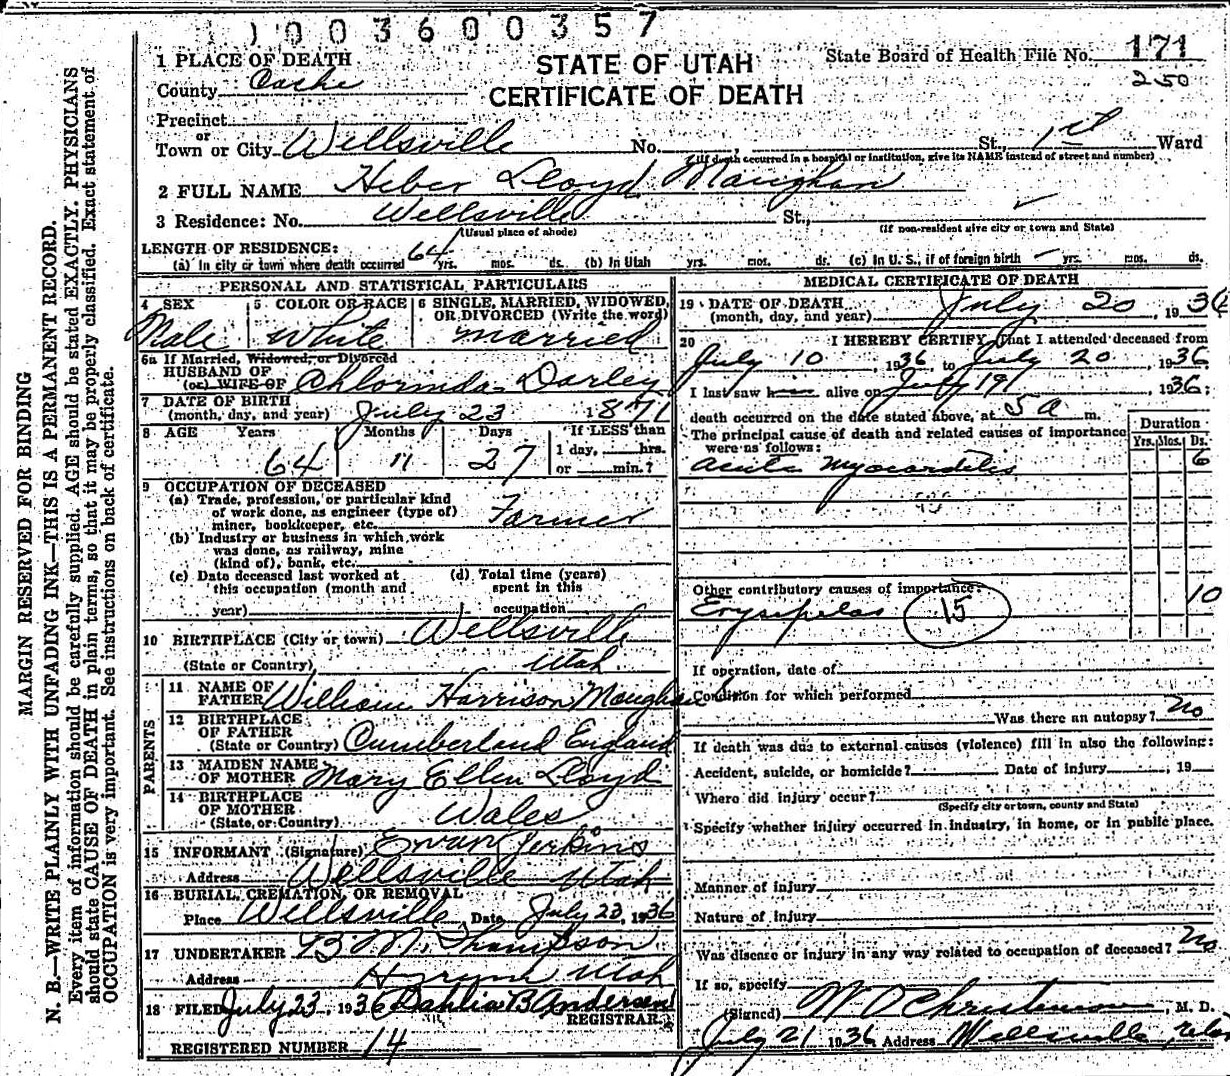 1003600357
1 PLACE OF DEATH
STATE OF UTAH
State Board of Health File No. 171
County Cache
CERTIFICATE OF DEATH
250
Precinct
or
Town or City Wellsville No. , St., 1st Ward
(If death occurred in a hospital or institution, give its NAME instead of street and number)
2 FULL NAME Heber Lloyd Maughan
3 Residence: No. Wellsville St.,
(Usual place of abode) (If non-resident give city or town and State)
LENGTH OF RESIDENCE:
(a) In city or town where death occurred 64 yrs. mos. ds. (b) In Utah yrs. mos. ds. (c) In U. S., if of foreign birth yrs. mos. ds.
PERSONAL AND STATISTICAL PARTICULARS
4 SEX 5 COLOR OR RACE 6 SINGLE, MARRIED, WIDOWED,
OR DIVORCED (Write the word)
Male White Married
6a If Married, Widowed, or Divorced
HUSBAND OF
(or) WIFE OF Chlorinda Darley
7 DATE OF BIRTH
(month, day, and year) July 23 1871
8 AGE Years Months Days If LESS than
1 day, hrs.
64 11 27 or min.?
9 OCCUPATION OF DECEASED
(a) Trade, profession, or particular kind
of work done, as engineer (type of)
miner, bookkeeper, etc. Farmer
(b) Industry or business in which work
was done, as railway, mine
(kind of), bank, etc.
(c) Date deceased last worked at (d) Total time (years)
this occupation (month and spent in this
year) occupation
10 BIRTHPLACE (City or town) Wellsville
(State or Country) Utah
PARENTS
11 NAME OF
FATHER William Harrison Maughan
12 BIRTHPLACE
OF FATHER
(State or Country) Cumberland England
13 MAIDEN NAME
OF MOTHER Mary Ellen Lloyd
14 BIRTHPLACE
OF MOTHER
(State or Country) Wales
15 INFORMANT (Signature) Evan Jenkins
Address Wellsville Utah
16 BURIAL, CREMATION, OR REMOVAL
Place Wellsville, Date July 23, 1936
17 UNDERTAKER B M Thompson
Address Hyrum Utah
18 FILED July 23, 1936 Dahlia B Andersen
REGISTRAR
REGISTERED NUMBER 14
MEDICAL CERTIFICATE OF DEATH
19 DATE OF DEATH
(month, day, and year) July 20, 1936
20 I HEREBY CERTIFY, That I attended deceased from
July 10, 1936 to July 20, 1936
I last saw h alive on July 19, 1936;
death occurred on the date stated above, at 5 a m.
The principal cause of death and related causes of importance
were as follows:
Duration
Yrs. Mos. Ds.
Acute Myocarditis 6
Other contributory causes of importance:
Erysipelas 15 10
If operation, date of
Condition for which performed
Was there an autopsy? No
If death was due to external causes (violence) fill in also the following:
Accident, suicide, or homicide? Date of injury , 19
Where did injury occur?
(Specify city or town, county and State)
Specify whether injury occurred in industry, in home, or in public place.
Manner of injury
Nature of injury
Was disease or injury in any way related to occupation of deceased? No
If so, specify
(Signed) W O Christensen, M. D.
July 21 1936 Address Wellsville, Utah
MARGIN RESERVED FOR BINDING
N. B.—WRITE PLAINLY WITH UNFADING INK—THIS IS A PERMANENT RECORD.
Every item of information should be carefully supplied. AGE should be stated EXACTLY. PHYSICIANS
should state CAUSE OF DEATH in plain terms, so that it may be properly classified. Exact statement of
OCCUPATION is very important. See instructions on back of certificate.